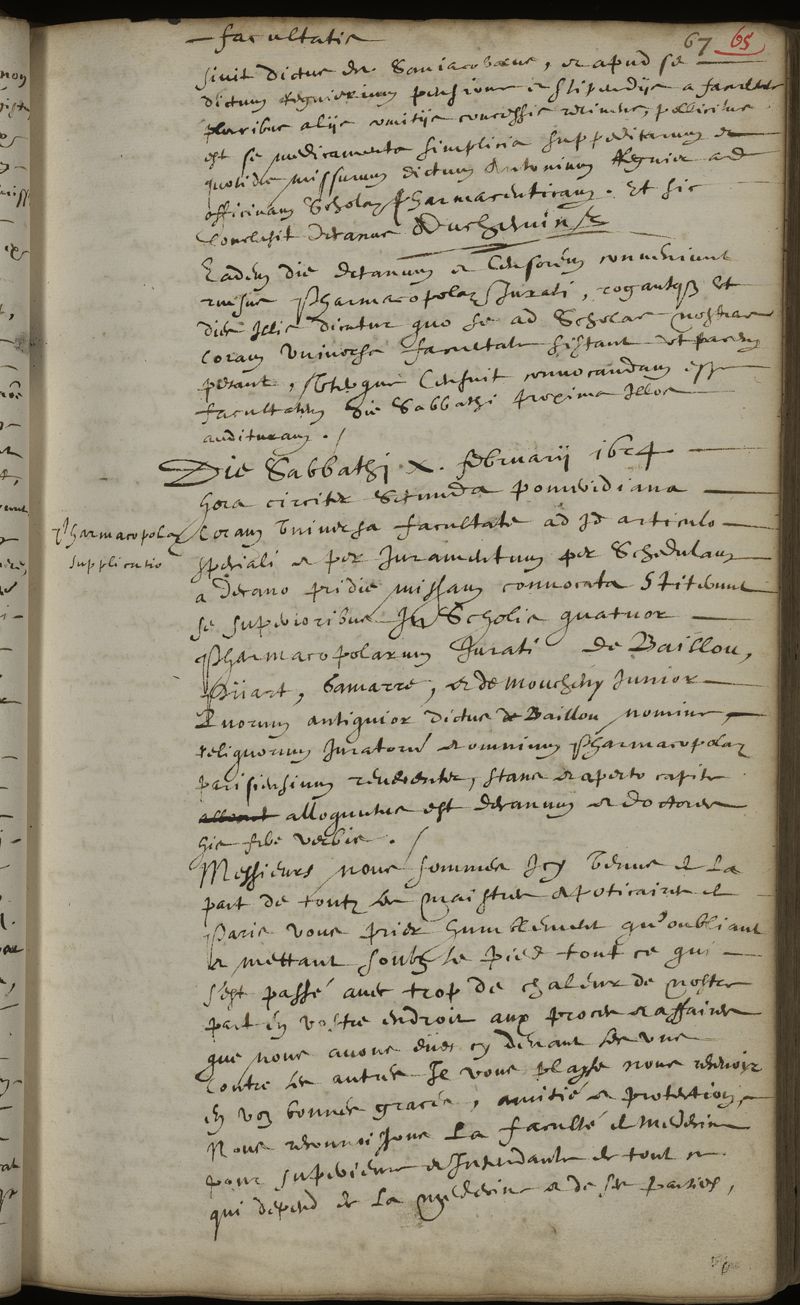 facultatis
67 65
sivit dictus de Saniacobaeus, et apud se
dictum Regnierium pensione et stipendijs a facultate
pluribus alijs comitijs concessis retinens, pollicitus
est se medicamenta simplicia suppeditaturum et
quotidie missurum dictum Antonium Regnier ad
officinam Scholae Pharmaceuticam. Et sic
Conclusit Decanus Duchemin
Eadem die decanum et Censorem conveniunt
rursus Pharmacopolae Jurati, rogantque ut
dies illis dicatur quo se ad Scholas nostras
coram universa facultate sistant et pacem
petant, censuit convocandam esse
facultatem die Sabbathi proxima illos
audituram.
Die Sabbathi X. februarij 1624
hora circiter Secunda pomeridiana
Pharmacopolae
supplicatio
Coram Universa facultate ad id articulo
speciali et per Juramentum per Schedulam
a Decano pridie missam convocata Stiterunt
se superioribus In Scholis quatuor
Pharmacopolarum Jurati de Baillou,
Püart, Samarre, et de Mouchény Junior
Quorum antiquior dictus de Baillou nomine
reliquorum Juratorum et omnium Pharmacopolar
parisiensium reverenter, stans et aperto capite
alloquutus est decanum et doctores
his fere verbis.
Messieurs nous sommes Icy Venus de La
part de toutz les maistres apoticaires de
Paris vous prier humblement qu'oubliant
et mettant soubz le pied tout ce qui
s'est passé avec trop de chaleur de nostre
part en vostre endroit aux proces et affaires
que nous avons eües cy devant les uns
contre les autres Il vous plaise nous recevoir
en voz bonnes graces, amitié et protection,
Nous recounoissons La faculté de Medecine
pour superieure et Intendante de tout ce
qui depend de La medecine et de ses parties,